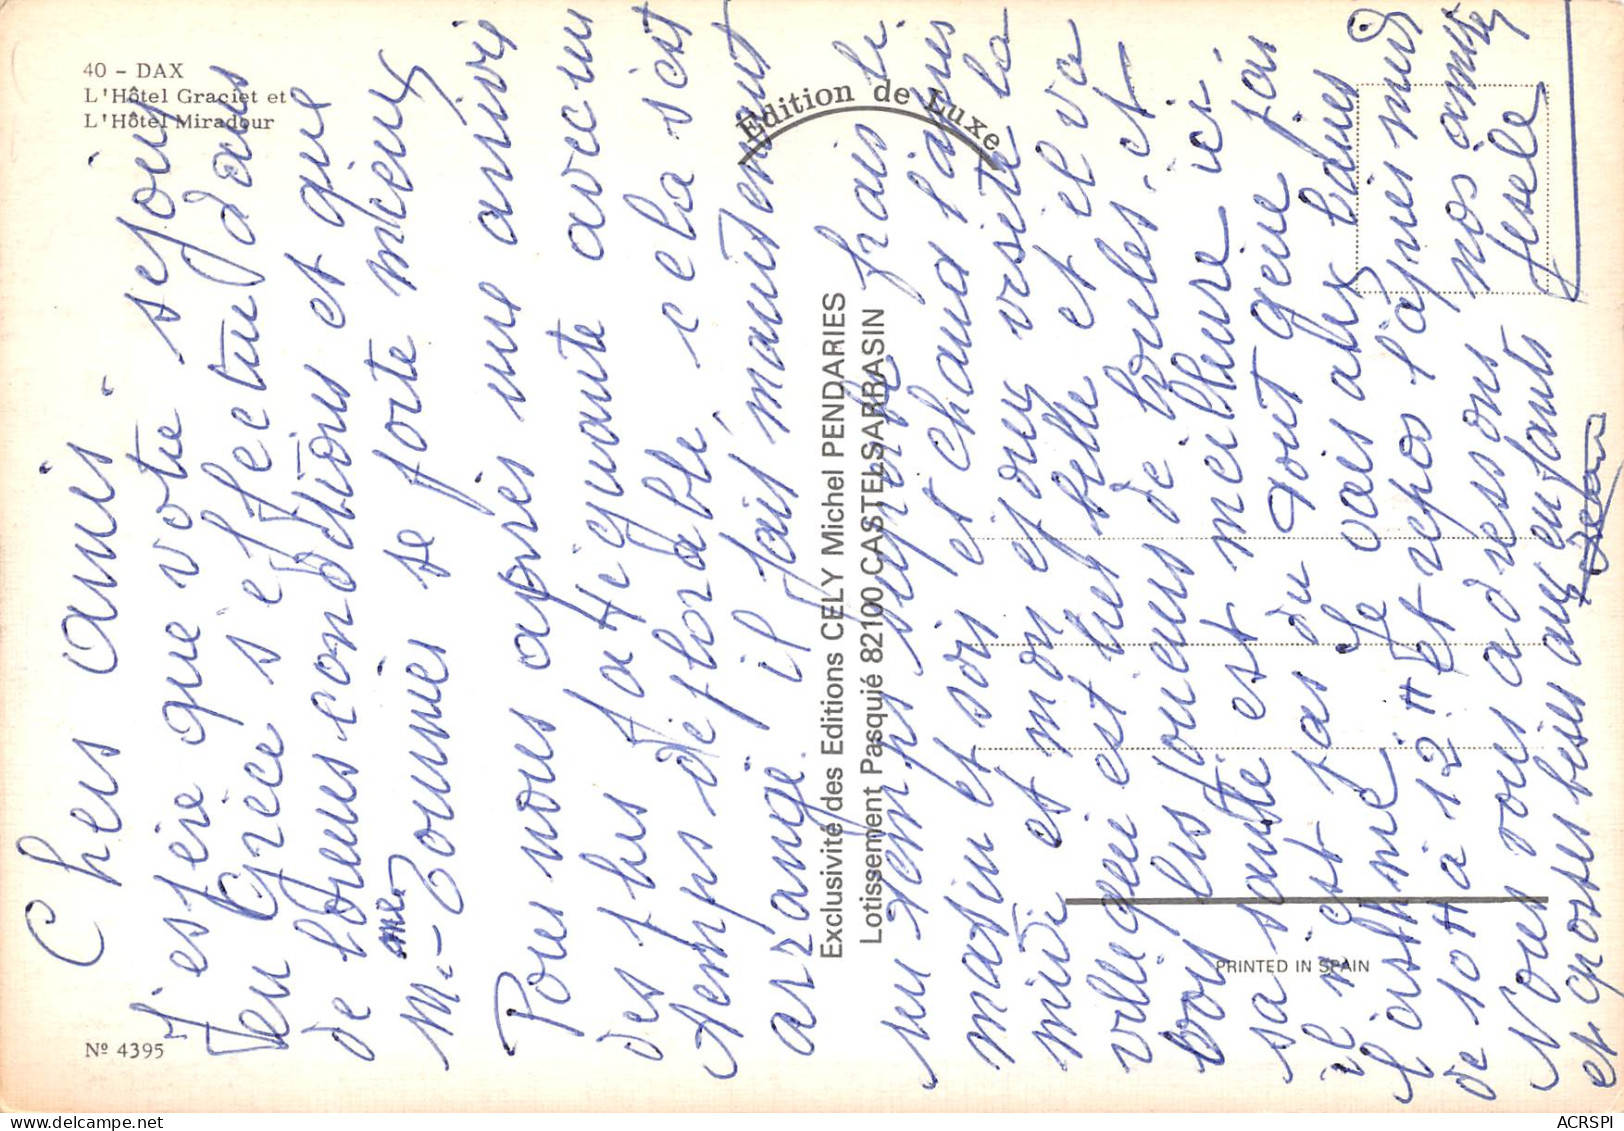 40 - DAX
L'Hôtel Graciet et
L'Hôtel Miradour
Nº 4395
Edition de Luxe
Exclusivité des Editions CELY Michel PENDARIES
Lotissement Pasquié 82100 CASTELSARRASIN
PRINTED IN SPAIN
Chers amis.
J'espère que votre sejour
en Grèce s'effectue dans
de bonnes conditions et que
Mme se porte mieux
Pour nous apres une arrivé
des plus fattiguante avec un
temps déplorable, cela s'est
arrangé. il fait maintenant
un temps frais le
matin et soir et chaud l'apres
midi et mon epoux visite la
ville qui est tres belle et il va
voir les joueurs de boules. et
sa santé est meilleure ici
il n'est pas du tout gêné par
l'asthme Je vais aux bains
de 10H à 12H et repos l'après midi
Nous vous adressons nos amitiés
et grosses bises aux enfants
Jean
ACRSPI